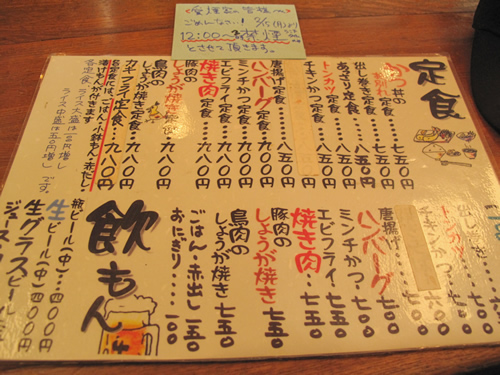 愛煙家の皆様へ
ごめんなさい! 8/15(月)より
12:00〜 禁煙
とさせて頂きます。
定食
かつ丼の
七五〇円
出し巻き定食・・七五〇円
あっさり定食・・八五〇円
トンカツ定食・・八五〇円
チキンかつ定食
唐揚げ定食・・・八五〇円
ハンバーグ定食・九〇〇円
ミンチかつ定食・九〇〇円
エビフライ定食・九〇〇円
焼き肉定食・・九八〇円
豚肉の
しょうが焼き定食・九八〇円
鳥肉の
しょうが焼き定食・九八〇円
カキフライ定食・・九八〇円
各定食には、ごはん・小鉢もん・赤だし・
漬けもんが付きます
ライス大盛は一〇〇円増し
ライス中盛は五〇円増しです。
トンカツ
チキンかつ
唐揚げ
ハンバーグ・七〇〇
ミンチかつ・七〇〇
エビフライ・七〇〇
焼き肉・・七五〇
豚肉の
しょうが焼き・七五〇
鳥肉の
しょうが焼き・七五〇
ごはん・赤出し・二五〇
おにぎり・・・一〇〇
飲もん
瓶ビール(中)・・六〇〇円
生ビール(中)・四〇〇円
生グラスビール
ジュース